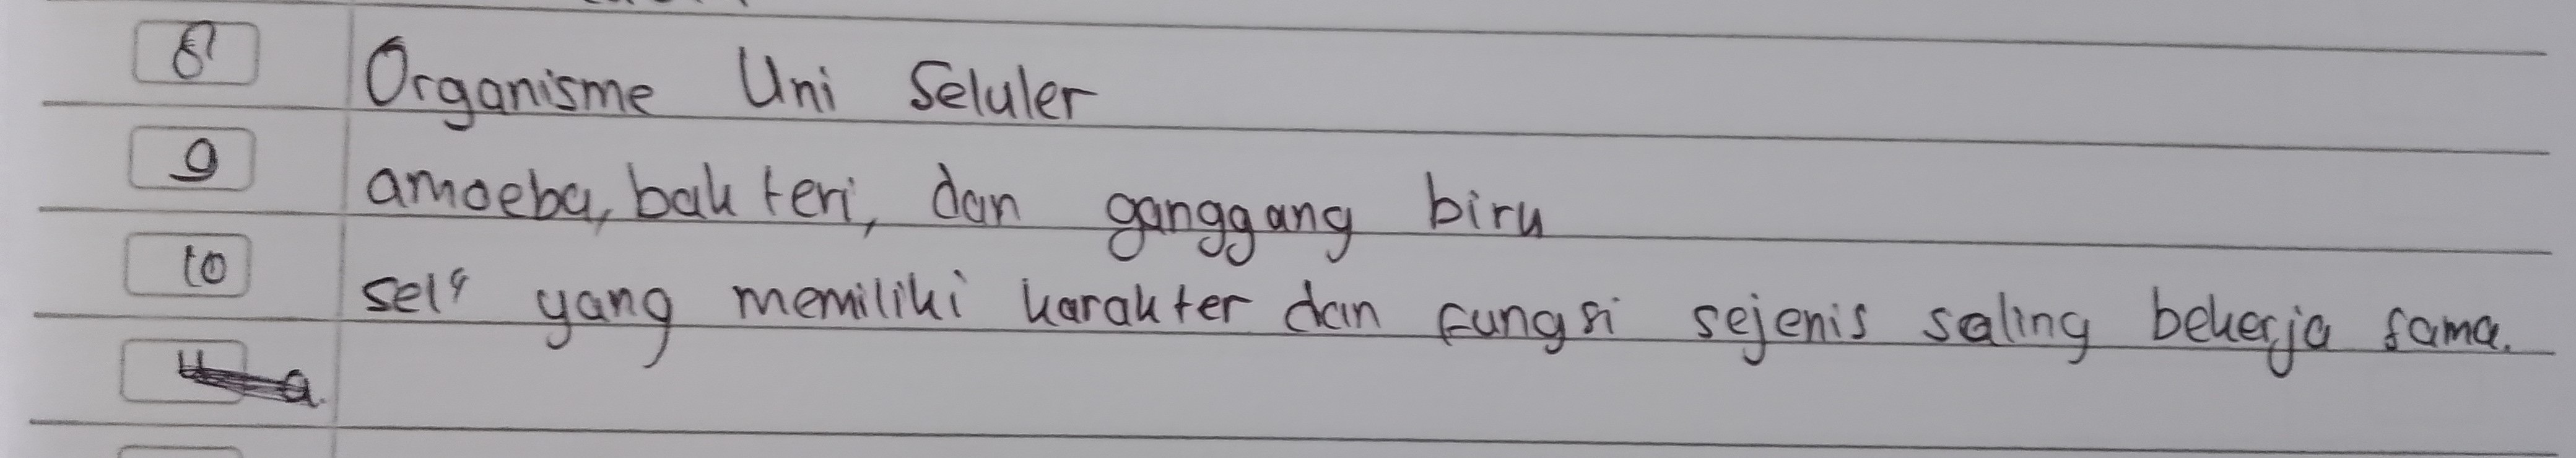 8 Organisme Uni Seluler
9 amoeba, bakteri, dan ganggang biru
10 sel" yang memiliki karakter dan fungsi sejenis saling bekerja sama.
a.